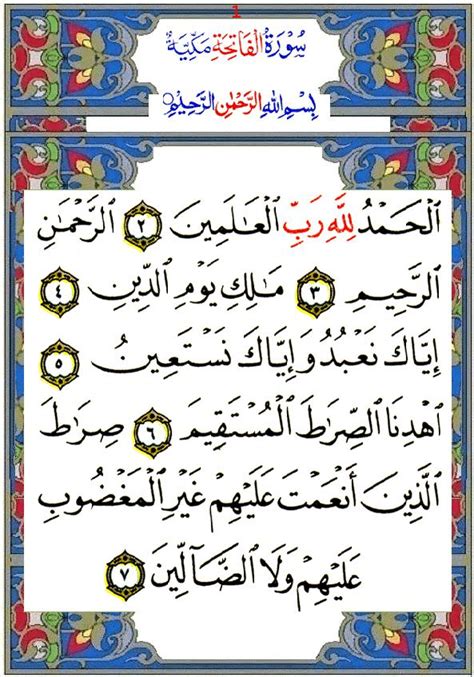 1
سُورَةُ الْفَاتِحَةِ مَكِّيَّة
بِسْمِ اللهِ الرَّحْمٰنِ الرَّحِيْمِ
ٱلْحَمْدُ لِلَّهِ رَبِّ ٱلْعَٰلَمِينَ ٢ ٱلرَّحْمَٰنِ
ٱلرَّحِيمِ ٣ مَٰلِكِ يَوْمِ ٱلدِّينِ ٤
إِيَّاكَ نَعْبُدُ وَإِيَّاكَ نَسْتَعِينُ ٥
ٱهْدِنَا ٱلصِّرَٰطَ ٱلْمُسْتَقِيمَ ٦ صِرَٰطَ
ٱلَّذِينَ أَنْعَمْتَ عَلَيْهِمْ غَيْرِ ٱلْمَغْضُوبِ
عَلَيْهِمْ وَلَا ٱلضَّآلِّينَ ٧